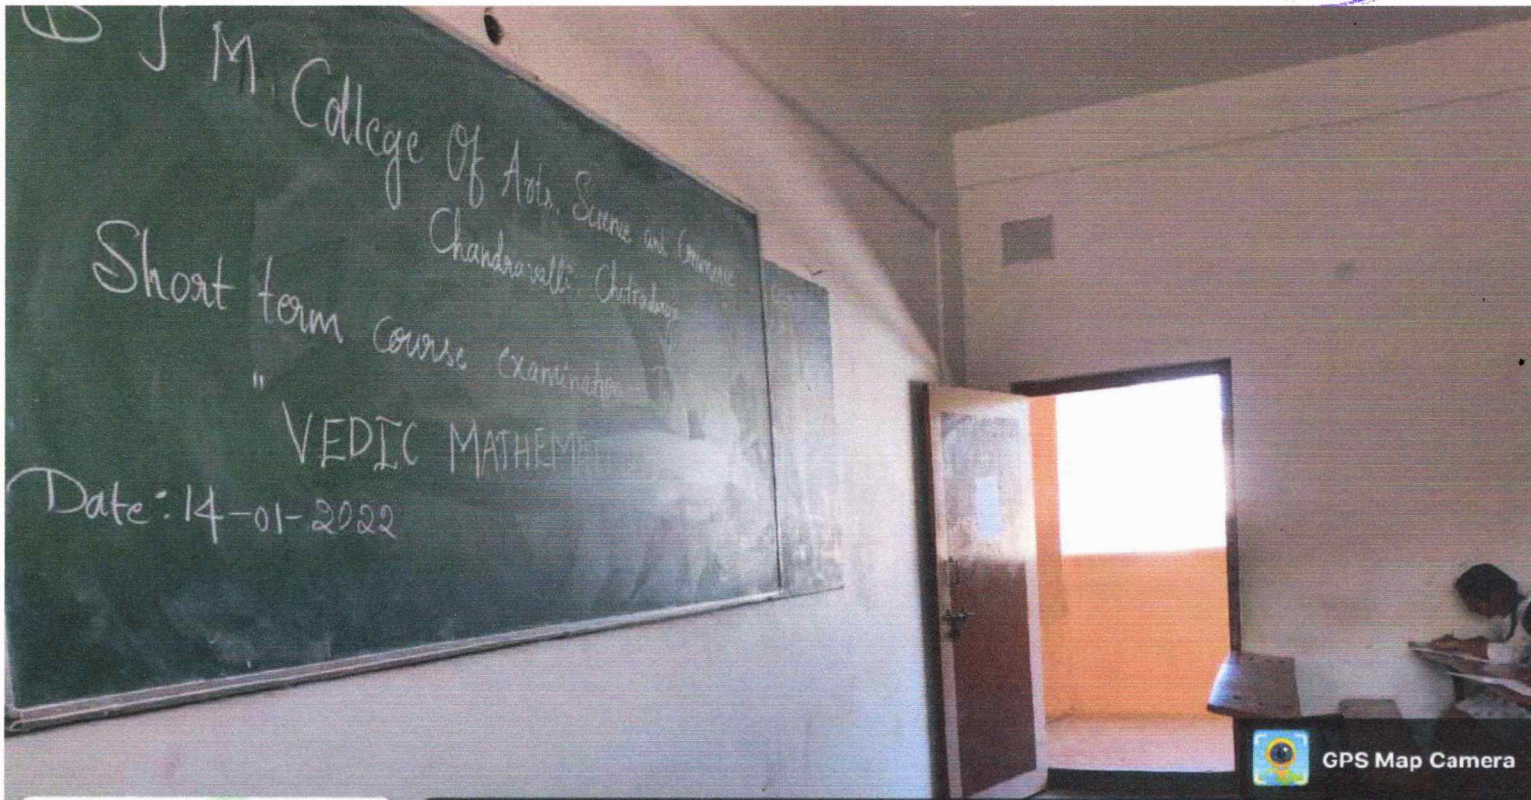 J M College Of Arts, Science and Commerce
Chandravalli Chitradurga
Short term course examination
" VEDIC MATHEMAT
Date: 14-01-2022
GPS Map Camera